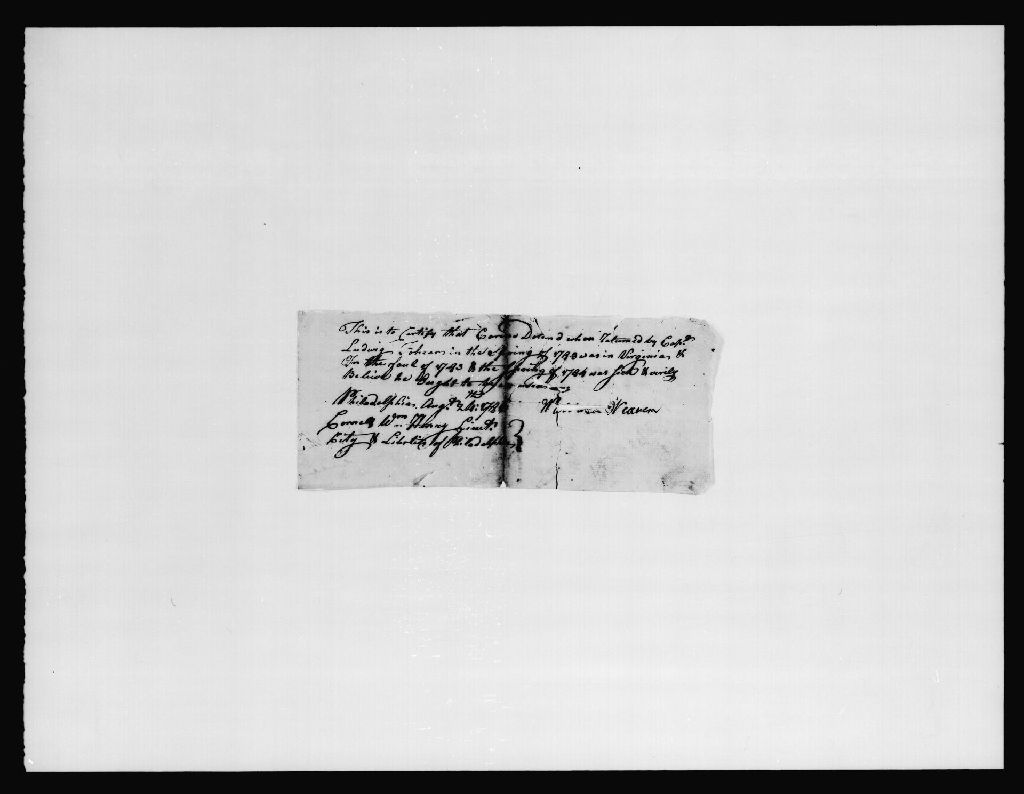 This is to Certify that Conrad Doland when Returned by Capt.
Ludwig in the Spring of 1783 was in Virginia &
In the faul of 1783 & the Spring of 1784 was Sick & verily
Believe he Ought to
Philadelphia Augt. 1786 William Weaver
Connel Wm. Henry Lieut.
City & Liberties of Philadelphia